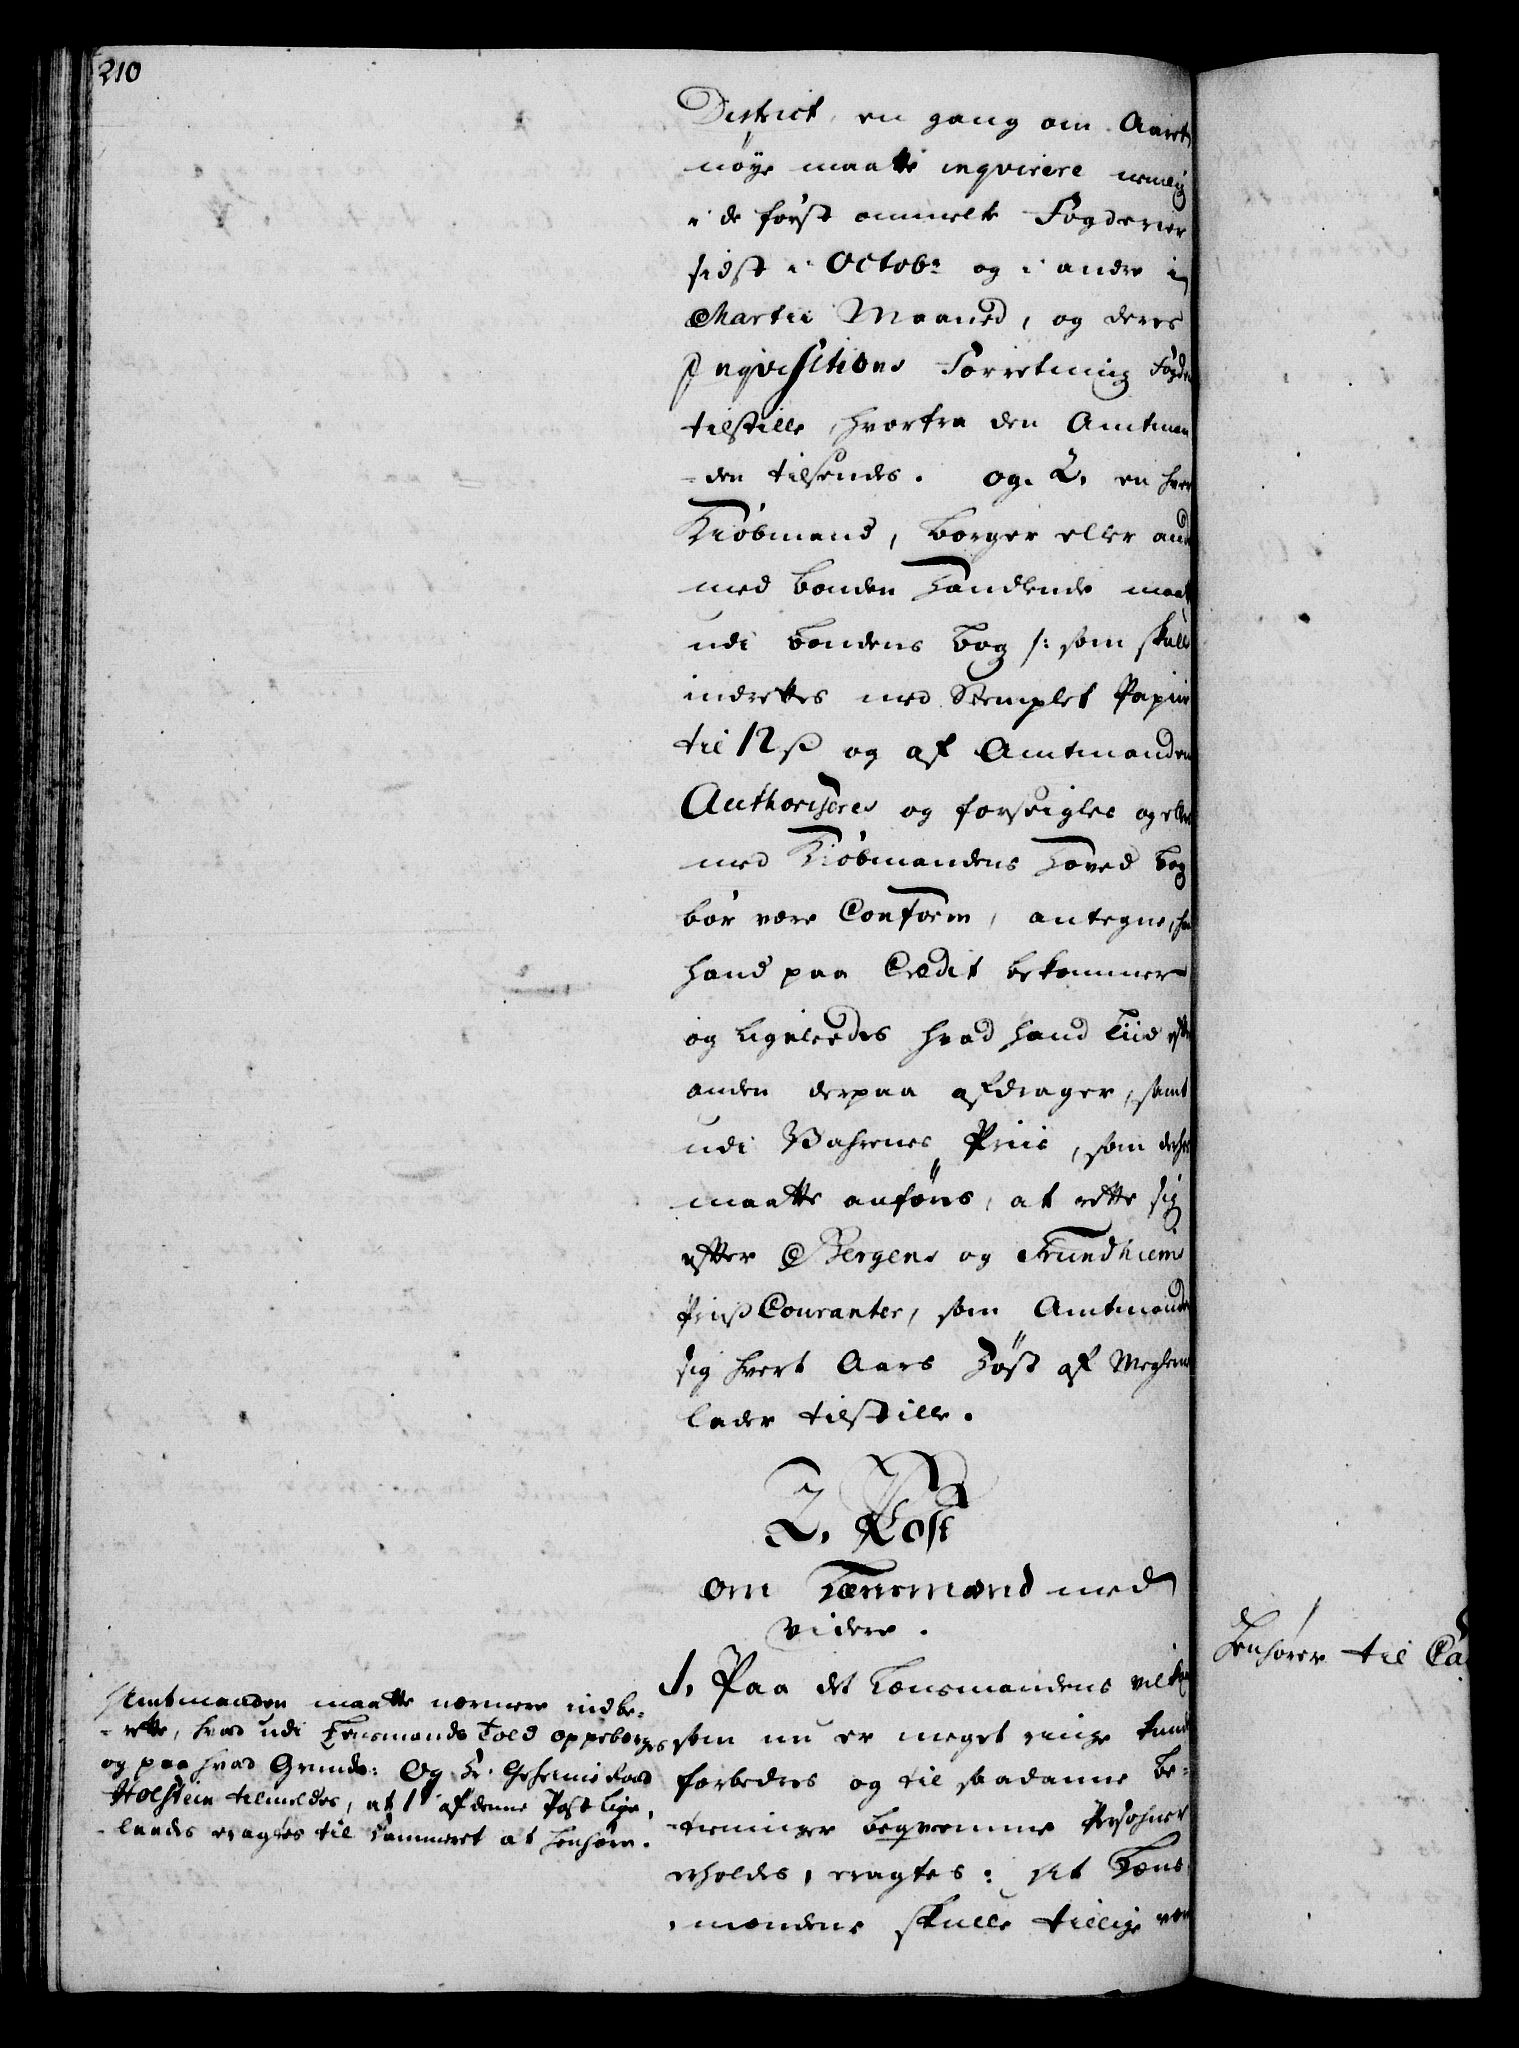 210
District, en gang om Aaret
nøye maatte inqvirere nemlig
i de først ommelte Fogderier
sidst i Octobr og i andre i
Martii Maaned, og deres
Inqvisitions Forretning Fogden
tilstille, hvorfra den Amtman
-den tilsendes. og 2, en hver
Kiøbmand, borger eller anden
med bonden Handlende maatte
udi bondens bog /: som skulle
indrettes med Stemplet Papiir
til 12 s og af Amtmanden
Authoriseres og forseigles og ellers
med Kiøbmandens Hoved bog
bør være Conform, antegne, hvad
hand paa Credit bekommer
og ligeleedes hvad hand Tiid efter
anden derpaa afdrager, samt
udi Vahrenes Priis, som derhos
maatte anføres, at rette sig
efter Bergens og Trundhiems
Priis Couranter, som Amtmanden
sig hvert Aars Høst af Meglerne
lader tilstille.
2. Post
om Lænsmænd med
videre.
1, Paa det Lænsmandens vilkor
som nu er meget ringe kunde
forbedres og til saadanne be-
-tieninger beqvemme Persohner
erholdes, eragtes: At Læns-
-mændene skulle tillige være
Amtmanden maatte nærmere indbe-
-rette, hvad udi Lensmands Told oppeborges
og paa hvad Grunde: Og Hr. Geheime Raad
Holstein tilmeldes, at 1 af denne Post lige-
-leedes eragtes til Cammeret at henhøre.
Henhører til Ca